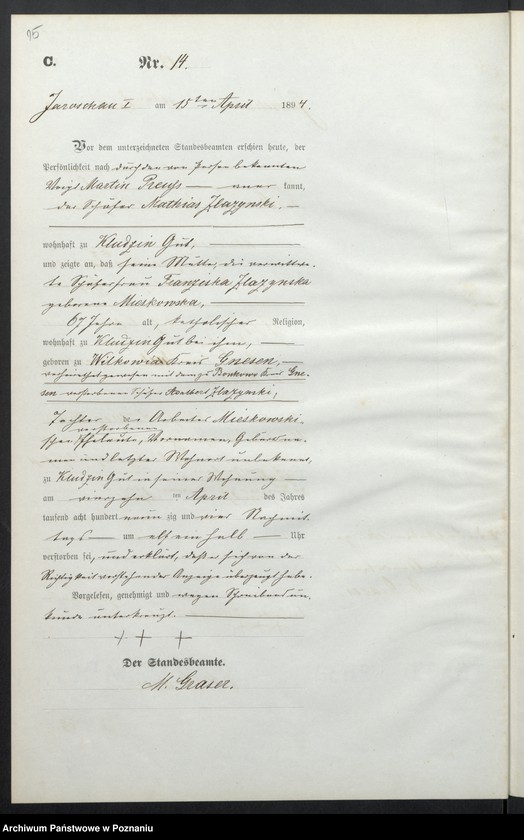 15
C. Nr. 14.
Jaroschau I am 15ten April 1894.
Vor dem unterzeichneten Standesbeamten erschien heute, der
Persönlichkeit nach durch den von Person bekannten
Voigt Martin Preuß — aner kannt,
der Schäfer Mathias Zlazynski. —
wohnhaft zu Kludzin Gut, —
und zeigte an, daß seine Mutter, die verwittwe-
te Schäferfrau Franziska Zlazynska
geborene Mieskowska, —
67 Jahre alt, katholischer Religion,
wohnhaft zu Kludzin Gut bei ihm, —
geboren zu Wilkowia Kreis Gnesen, —
verheirathet gewesen mit dem zu Kreis Gne-
sen verstorbenen Schäfer Adelbert Zlazynski,
Tochter der Arbeiter Mieskowski-
verstorbenen
schen Eheleute, Vornamen, Geburtsna-
men und letzter Wohnort unbekannt,
zu Kludzin Gut in seiner Wohnung —
am vierzehn ten April des Jahres
tausend acht hundert neun zig und vier Nachmit-
tags — um elf ein halb — Uhr
verstorben sei, und erklärt, daß er sich von der
Richtigkeit vorstehender Anzeige überzeugt habe.
Vorgelesen, genehmigt und wegen Schreibensun-
kunde unterkreuzt. —
+ + +
Der Standesbeamte.
M. Graser.
Archiwum Państwowe w Poznaniu